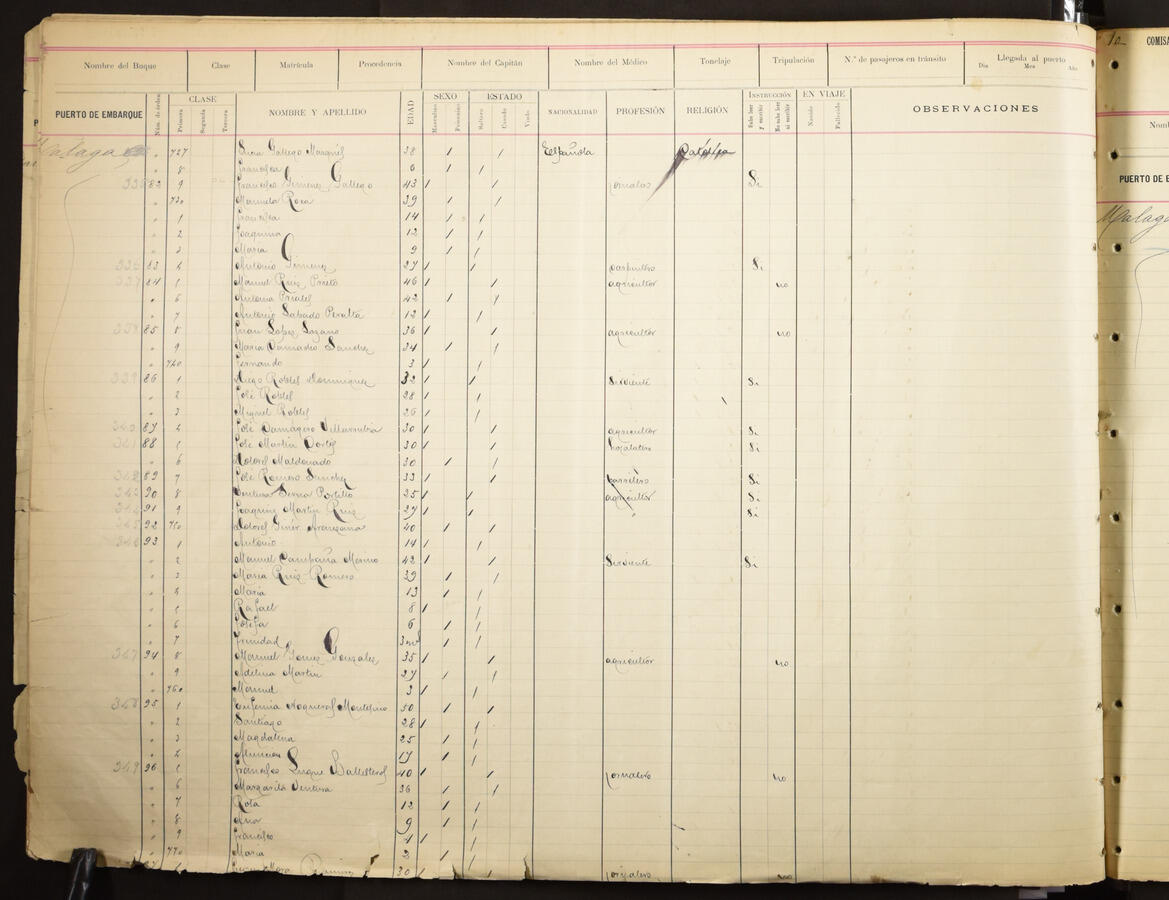 Nombre del Buque Clase Matrícula Procedencia Nombre del Capitán Nombre del Médico Tonelaje Tripulación N.º de pasajeros en tránsito Llegada al puerto
Dia Mes Año
PUERTO DE EMBARQUE Núm. de órden CLASE Primera Segunda Tercera NOMBRE Y APELLIDO EDAD SEXO Masculino Femenino ESTADO Soltero Casado Viudo NACIONALIDAD PROFESIÓN RELIGIÓN INSTRUCCIÓN Sabe leer y escribir No sabe leer ni escribir EN VIAJE Nacido Fallecido OBSERVACIONES
Malaga " 727 Gallego 38 / / Española Catolica
" 8 Francisca 6 / /
82 9 Francisco Gimenez Gallego 43 / / Si
" 730 Manuela Rosa 39 / /
" 1 Francisca 14 / /
" 2 Joaquina 12 / /
" 3 Maria 9 / /
336 83 4 Antonio Gimenez 27 / / Si
337 84 5 Manuel Ruiz Prieto 46 / / agricultor no
" 6 Antonia 42 / /
" 7 Antonio Peralta 12 / /
338 85 8 Juan Lopez Lozano 36 / / agricultor no
" 9 Maria Sanchez 34 / /
" 740 Fernando 3 / /
339 86 1 Diego Robles Dominguez 32 / / Sirviente Si
" 2 José Robles 28 / /
" 3 Miguel Robles 26 / /
340 87 4 José Villarrubia 30 / / agricultor Si
341 88 5 José Martin Cortes 30 / / hojalatero Si
" 6 Dolores Maldonado 30 / /
342 89 7 José Romero Sanchez 33 / / Si
343 90 8 Ventura Serna Portillo 25 / / agricultor Si
344 91 9 Joaquin Martin Ruiz 27 / / Si
345 92 750 Dolores 40 / /
346 93 1 Antonio 14 / /
" 2 Manuel Campaña Merino 42 / / Sirviente Si
" 3 Maria Ruiz Romero 39 / /
" 4 Maria 13 / /
" 5 Rafael 8 / /
" 6 Josefa 6 / /
" 7 Trinidad 3 m / /
347 94 8 Manuel Gomez Gonzalez 35 / / agricultor no
" 9 Adelina Martin 27 / /
" 760 Manuel 3 / /
348 95 1 Eufemia 50 / /
" 2 Santiago 28 / /
" 3 Magdalena 25 / /
" 4 Asuncion 17 / /
349 96 5 Francisco Luque Ballesteros 40 / / jornalero no
" 6 Margarita Ventura 36 / /
" 7 Rosa 12 / /
" 8 Ana 9 / /
" 9 Francisco 4 / /
" 770 Maria 2 / /
30 / / jornalero no
COMISA
PUERTO DE E
Malaga